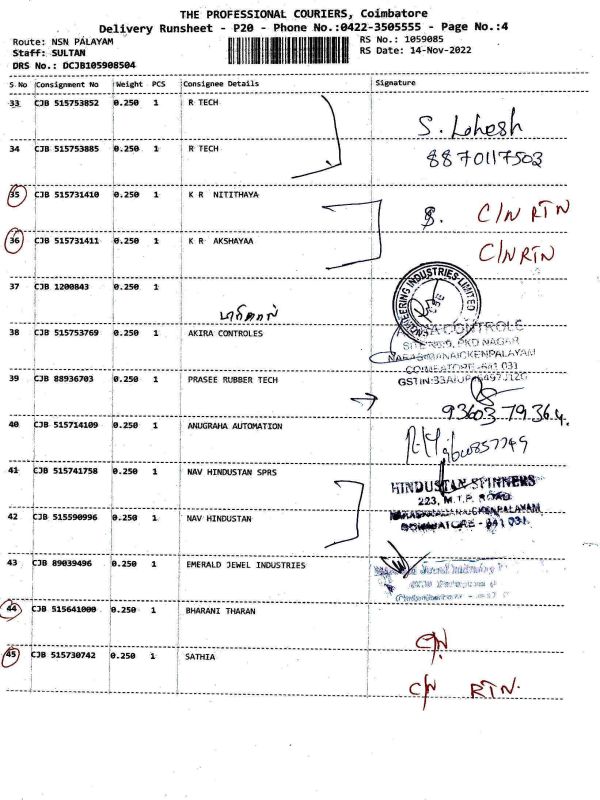 THE PROFESSIONAL COURIERS, Coimbatore
Delivery Runsheet - P20 - Phone No.:0422-3505555 - Page No.:4
Route: NSN PALAYAM
RS No.: 1059085
Staff: SULTAN
RS Date: 14-Nov-2022
DRS No.: DCJB105908504
S No Consignment No Weight PCS Consignee Details Signature
33 CJB 515753852 0.250 1 R TECH
S. Lohesh
34 CJB 515753885 0.250 1 R TECH
8870117503
35 CJB 515731410 0.250 1 K R NITITHAYA
C/N RTN
36 CJB 515731411 0.250 1 K R AKSHAYAA
C/N RTN
37 CJB 1200843 0.250 1
ENGINEERING INDUSTRIES LIMITED
38 CJB 515753769 0.250 1 AKIRA CONTROLES
CONTROLE
PKD NAGAR
NARASIMANAICKENPALAYAM
COIMBATORE-641 031
39 CJB 88936703 0.250 1 PRASEE RUBBER TECH
GSTIN:
93603 79364.
40 CJB 515714109 0.250 1 ANUGRAHA AUTOMATION
41 CJB 515741758 0.250 1 NAV HINDUSTAN SPRS
HINDUSTAN SPINNERS
223, M.T.P. ROAD
42 CJB 515590996 0.250 1 NAV HINDUSTAN
NARASIMANAICKENPALAYAM
COIMBATORE - 641 031.
43 CJB 89039496 0.250 1 EMERALD JEWEL INDUSTRIES
44 CJB 515641000 0.250 1 BHARANI THARAN
C/N
45 CJB 515730742 0.250 1 SATHIA
C/N RTN.